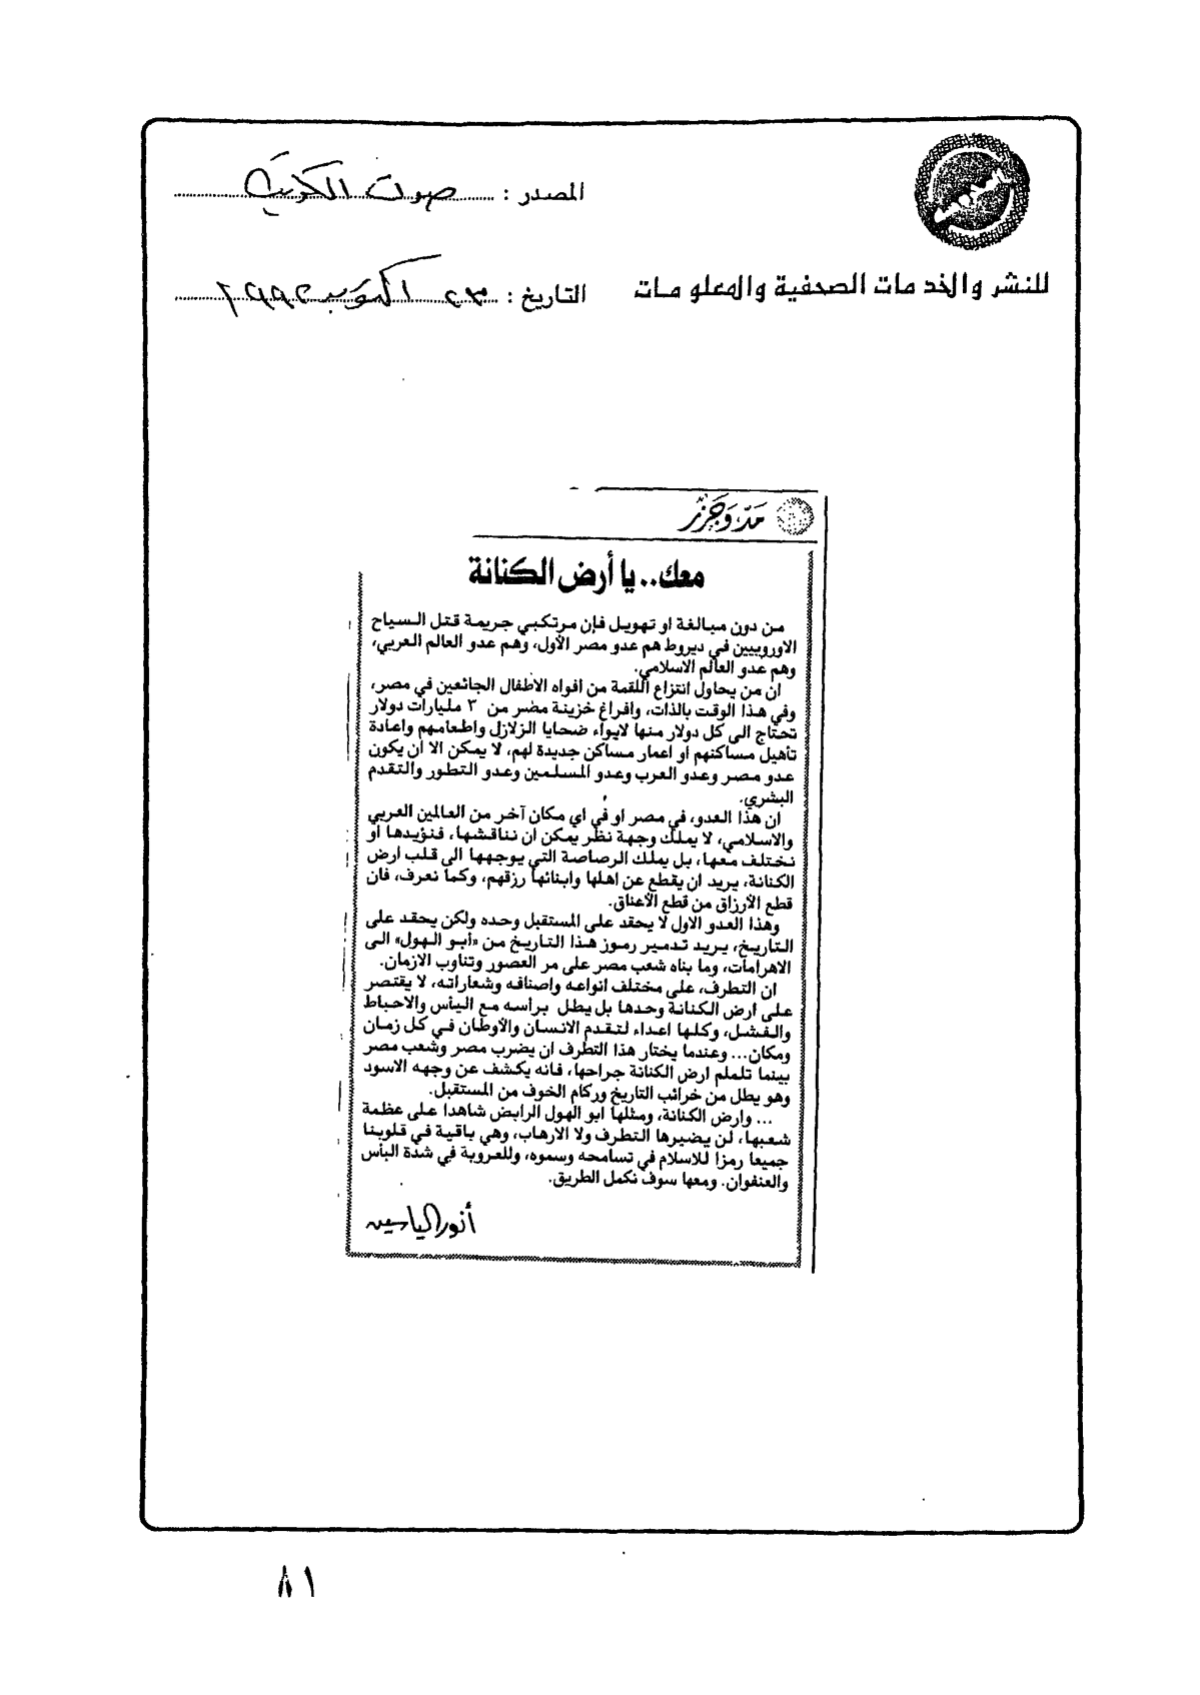 المصدر : صوت الكويت
للنشر والخدمات الصحفية والمعلومات
التاريخ : ٢٣ اكتوبر ١٩٩٢
مَدّ وَجَزر
معك.. يا أرض الكنانة
من دون مبالغة او تهويل فإن مرتكبي جريمة قتل السياح
الاوروبيين في ديروط هم عدو مصر الأول، وهم عدو العالم العربي،
وهم عدو العالم الاسلامي.
ان من يحاول انتزاع اللقمة من افواه الاطفال الجائعين في مصر،
وفي هذا الوقت بالذات، وافراغ خزينة مصر من ٣ مليارات دولار
تحتاج الى كل دولار منها لايواء ضحايا الزلازل واطعامهم واعادة
تأهيل مساكنهم او اعمار مساكن جديدة لهم، لا يمكن الا ان يكون
عدو مصر وعدو العرب وعدو المسلمين وعدو التطور والتقدم
البشري.
ان هذا العدو، في مصر او في اي مكان آخر من العالمين العربي
والاسلامي، لا يملك وجهة نظر يمكن ان نناقشها، فنؤيدها او
نختلف معها، بل يملك الرصاصة التي يوجهها الى قلب ارض
الكنانة، يريد ان يقطع عن اهلها وابنائها رزقهم، وكما نعرف، فان
قطع الأرزاق من قطع الاعناق.
وهذا العدو الاول لا يحقد على المستقبل وحده ولكن يحقد على
التاريخ، يريد تدمير رموز هذا التاريخ من «أبو الهول» الى
الاهرامات، وما بناه شعب مصر على مر العصور وتناوب الازمان.
ان التطرف، على مختلف انواعه واصنافه وشعاراته، لا يقتصر
على ارض الكنانة وحدها بل يطل برأسه مع اليأس والاحباط
والفشل، وكلها اعداء لتقدم الانسان والأوطان في كل زمان
ومكان... وعندما يختار هذا التطرف ان يضرب مصر وشعب مصر
بينما تلملم ارض الكنانة جراحها، فانه يكشف عن وجهه الاسود
وهو يطل من خرائب التاريخ وركام الخوف من المستقبل.
... وارض الكنانة، ومثلها ابو الهول الرابض شاهدا على عظمة
شعبها، لن يضيرها التطرف ولا الارهاب، وهي باقية في قلوبنا
جميعا رمزا للاسلام في تسامحه وسموه، وللعروبة في شدة البأس
والعنفوان. ومعها سوف نكمل الطريق.
أنور الياسين
٨١